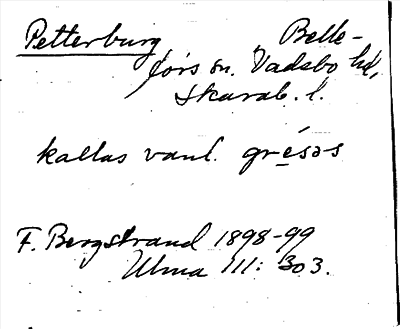 Petterburg Belle-
fors sn. Vadsbo hd,
Skarab. l.
kallas vanl. grésəs
F. Bergstrand 1898-99
Ulma 111: 303.